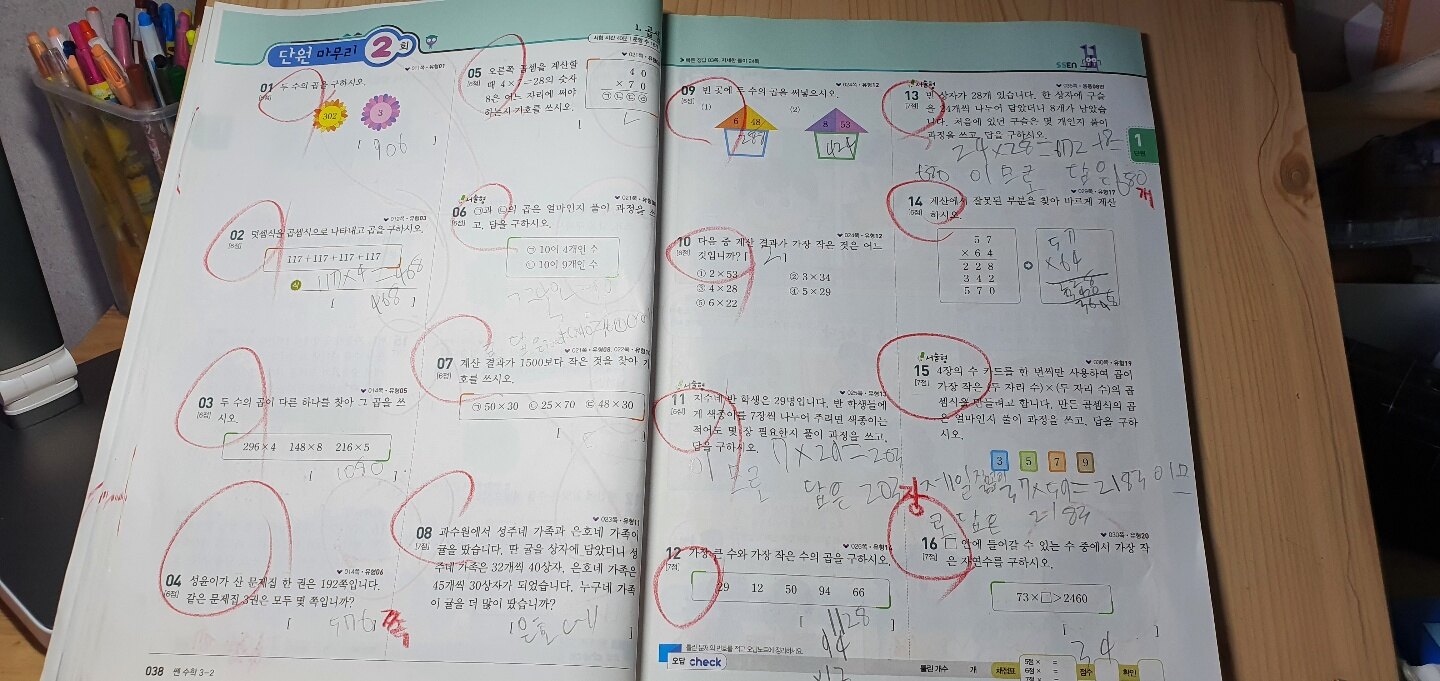 단원 마무리 2회
1. 곱셈
♥ 011쪽 • 유형01
01 두 수의 곱을 구하시오.
[5점]
302 3
[ 906 ]
♥ 012쪽 • 유형03
02 덧셈식을 곱셈식으로 나타내고 곱을 구하시오.
[5점]
117+117+117+117
식 117×4=468
468
♥ 014쪽 • 유형05
03 두 수의 곱이 다른 하나를 찾아 그 곱을 쓰
[6점] 시오.
296×4 148×8 216×5
[ 1080 ]
♥ 014쪽 • 유형06
04 성윤이가 산 문제집 한 권은 192쪽입니다.
[6점] 같은 문제집 3권은 모두 몇 쪽입니까?
[ 576 쪽 ]
038 쎈 수학 3-2
05 오른쪽 곱셈을 계산할
때 4×7=28의 숫자
8은 어느 자리에 써야
하는지 기호를 쓰시오.
4 0
× 7 0
㉠㉡㉢㉣
서술형
06 ㉠과 ㉡의 곱은 얼마인지 풀이 과정을 쓰
[6점] 고, 답을 구하시오.
㉠ 10이 4개인 수
㉡ 10이 9개인 수
07 계산 결과가 1500보다 작은 것을 찾아 기
[6점] 호를 쓰시오.
㉠ 50×30 ㉡ 25×70 ㉢ 48×30
♥ 023쪽 • 유형11
08 과수원에서 성주네 가족과 은호네 가족이
[7점] 귤을 땄습니다. 딴 귤을 상자에 담았더니 성
주네 가족은 32개씩 40상자, 은호네 가족은
45개씩 30상자가 되었습니다. 누구네 가족
이 귤을 더 많이 땄습니까?
[ 은호네 ]
▶ 빠른 정답 03쪽, 자세한 풀이 24쪽
SSEN
♥ 024쪽 • 유형12
09 빈 곳에 두 수의 곱을 써넣으시오.
[5점] (1) (2)
6 48 8 53
424
♥ 024쪽 • 유형12
10 다음 중 계산 결과가 가장 작은 것은 어느
[6점] 것입니까?
① 2×53 ② 3×34
③ 4×28 ④ 5×29
⑤ 6×22
서술형
11 지수네 반 학생은 29명입니다. 반 학생들에
[6점] 게 색종이를 7장씩 나누어 주려면 색종이는
적어도 몇 장 필요한지 풀이 과정을 쓰고,
답을 구하시오.
7×29=203
이므로 답은 203장
12 가장 큰 수와 가장 작은 수의 곱을 구하시오.
[7점]
29 12 50 94 66
[ 1128 ]
94
오답 check
틀린 개수 개 채점표 점수 확인
서술형
13 빈 상자가 28개 있습니다. 한 상자에 구슬
[7점] 을 24개씩 나누어 담았더니 8개가 남았습
니다. 처음에 있던 구슬은 몇 개인지 풀이
과정을 쓰고, 답을 구하시오.
24×28=672+8=
680 이므로 답은 680
개
1
단원
♥ 029쪽 • 유형17
14 계산에서 잘못된 부분을 찾아 바르게 계산
[6점] 하시오.
5 7
× 6 4
2 2 8
3 4 2
5 7 0
57
×64
♥ 030쪽 • 유형19
서술형
15 4장의 수 카드를 한 번씩만 사용하여 곱이
[7점] 가장 작은 (두 자리 수)×(두 자리 수)의 곱
셈식을 만들려고 합니다. 만든 곱셈식의 곱
은 얼마인지 풀이 과정을 쓰고, 답을 구하
시오.
3 5 7 9
37×59=2183 이므
로 답은 2183
♥ 030쪽 • 유형20
16 □ 안에 들어갈 수 있는 수 중에서 가장 작
[7점] 은 자연수를 구하시오.
73×□>2460
[ 34 ]